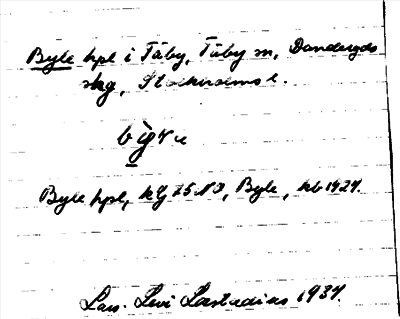 Byle hpl i Täby, Täby sn, Danderyds
skg, Stockholms l.
Byle hpl, kg 75 NO, Byle, kb 1924.
Lars Levi Læstadius 1934.